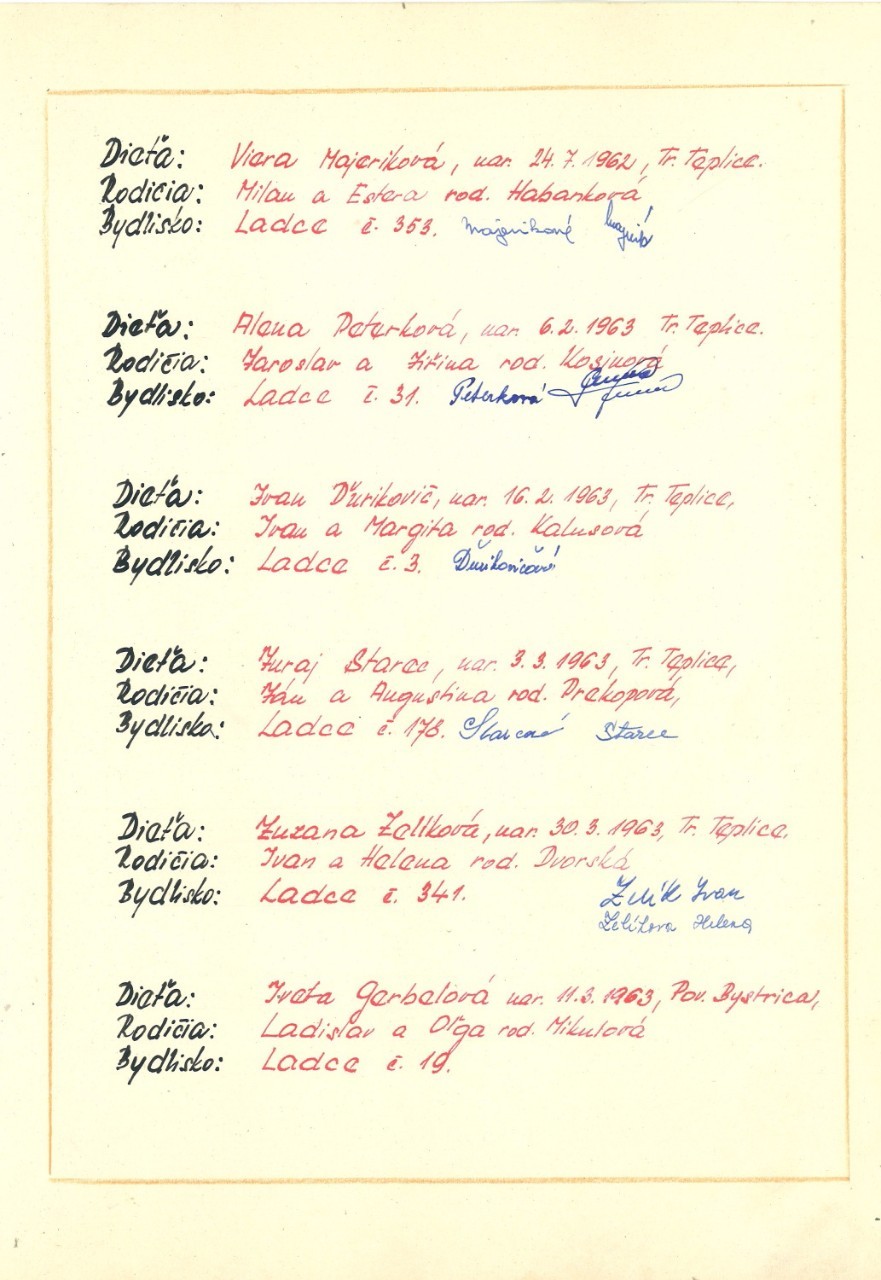 Dieťa: Viera Majeriková, nar. 24. 7. 1962, Tr. Teplice.
Rodičia: Milan a Estera rod. Habánková
Bydlisko: Ladce č. 353. Majeriková
Dieťa: Alena Peterková, nar. 6. 2. 1963 Tr. Teplice.
Rodičia: Jaroslav a Jiřina rod. Kosinová
Bydlisko: Ladce č. 31. Peterková
Dieťa: Ivan Ďurikovič, nar. 16. 2. 1963, Tr. Teplice,
Rodičia: Ivan a Margita rod. Kalusová
Bydlisko: Ladce č. 3. Ďurikovičová
Dieťa: Juraj Starec, nar. 3. 3. 1963, Tr. Teplice,
Rodičia: Ján a Augustina rod. Prekopová,
Bydlisko: Ladce č. 178. Starcová Starec
Dieťa: Zuzana Zelíková, nar. 30. 3. 1963, Tr. Teplice.
Rodičia: Ivan a Helena rod. Dvorská
Bydlisko: Ladce č. 341. Zelík Ivan
Zelíkova Helena
Dieťa: Iveta Gerbelová nar. 11. 3. 1963, Pov. Bystrica,
Rodičia: Ladislav a Oľga rod. Mikulová
Bydlisko: Ladce č. 19.